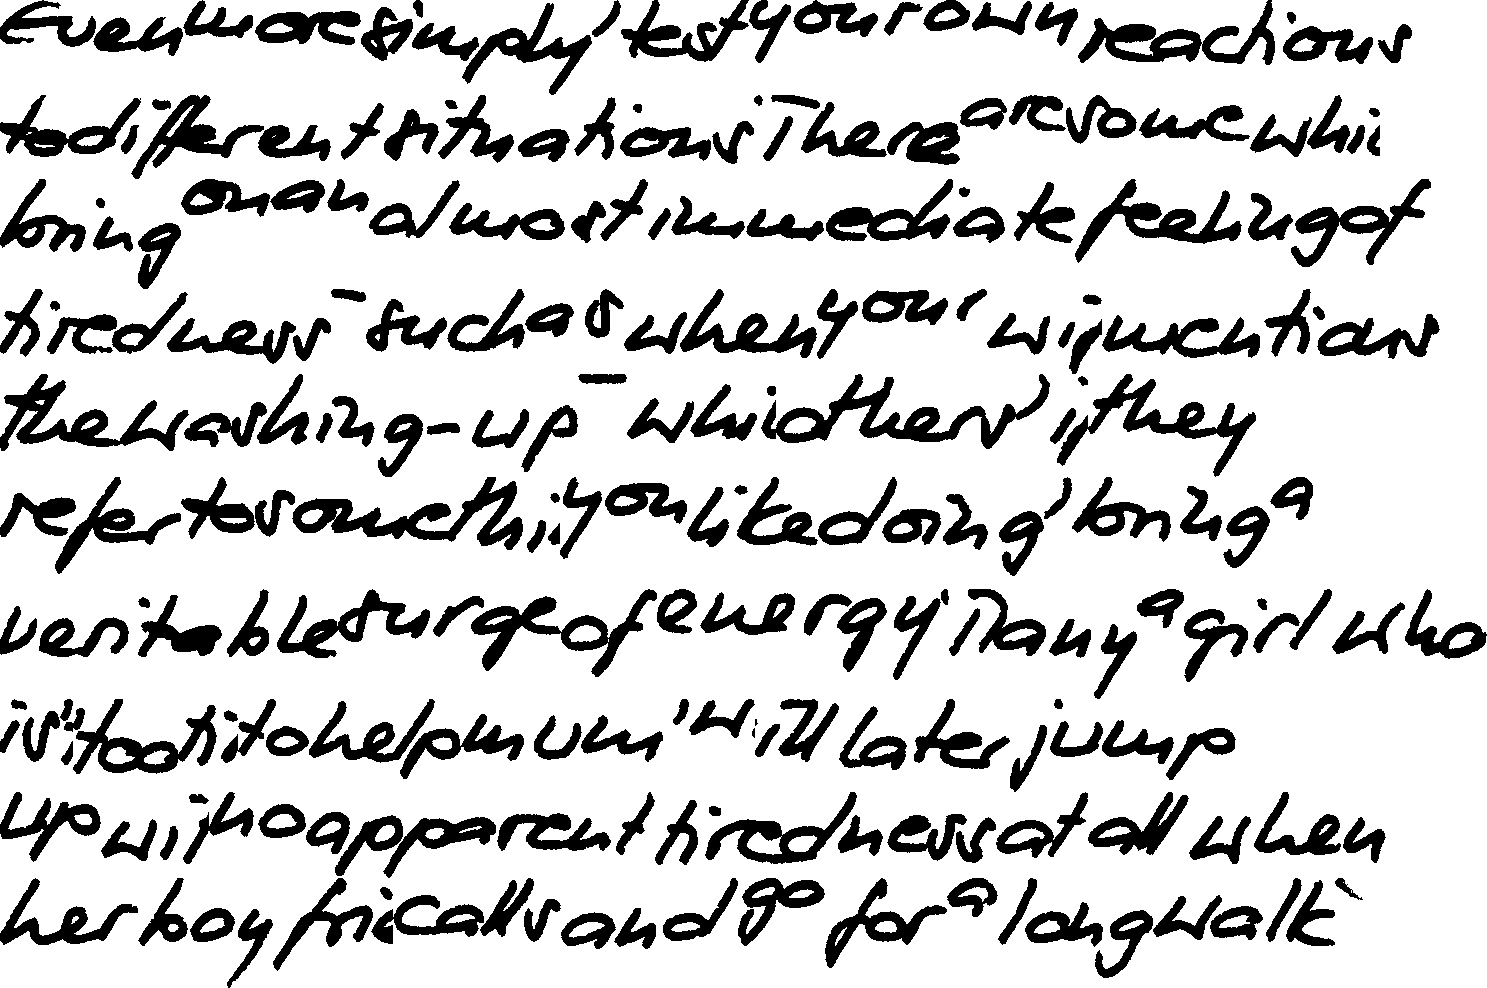 Even more simply, test your own reactions
to different situations. There are some whi
bring on an almost immediate feeling of
tiredness - such as when your wi mentions
the washing-up - whi others, i they
refer to somethi you like doing, bring a
veritable surge of energy. Many a girl who
is "too ti to help mum" will later jump
up wi no apparent tiredness at all when
her boy fri calls and go for a long walk.